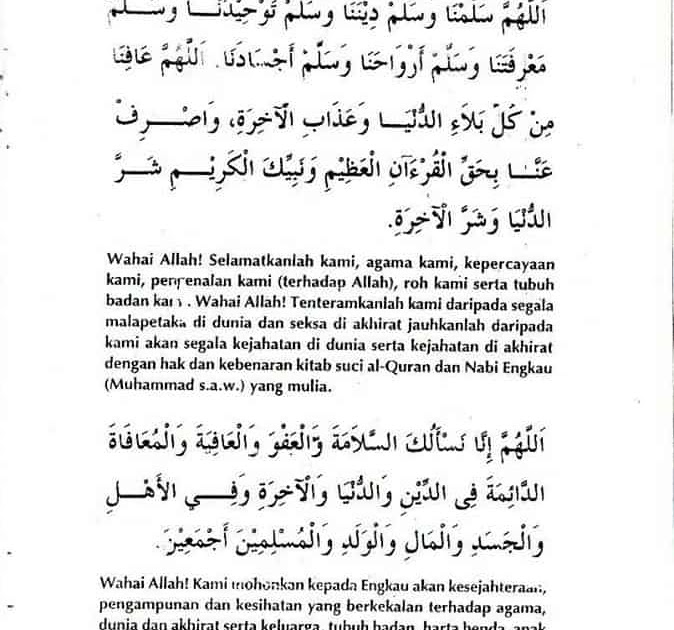 اَللّٰهُمَّ سَلِّمْنَا وَسَلِّمْ دِيْنَنَا وَسَلِّمْ تَوْحِيْدَنَا وَسَلِّمْ
مَعْرِفَتَنَا وَسَلِّمْ أَرْوَاحَنَا وَسَلِّمْ أَجْسَادَنَا. اَللّٰهُمَّ عَافِنَا
مِنْ كُلِّ بَلَاءِ الدُّنْيَا وَعَذَابِ الْآخِرَةِ، وَاصْرِفْ
عَنَّا بِحَقِّ الْقُرْءَآنِ الْعَظِيْمِ وَنَبِيِّكَ الْكَرِيْمِ شَرَّ
الدُّنْيَا وَشَرَّ الْآخِرَةِ.
Wahai Allah! Selamatkanlah kami, agama kami, kepercayaan
kami, pengenalan kami (terhadap Allah), roh kami serta tubuh
badan kami. Wahai Allah! Tenteramkanlah kami daripada segala
malapetaka di dunia dan seksa di akhirat jauhkanlah daripada
kami akan segala kejahatan di dunia serta kejahatan di akhirat
dengan hak dan kebenaran kitab suci al-Quran dan Nabi Engkau
(Muhammad s.a.w.) yang mulia.
اَللّٰهُمَّ إِنَّا نَسْأَلُكَ السَّلَامَةَ وَالْعَفْوَ وَالْعَافِيَةَ وَالْمُعَافَاةَ
الدَّائِمَةَ فِى الدِّيْنِ وَالدُّنْيَا وَالْآخِرَةِ وَفِي الأَهْلِ
وَالْجَسَدِ وَالْمَالِ وَالْوَلَدِ وَالْمُسْلِمِيْنَ أَجْمَعِيْنَ.
Wahai Allah! Kami mohonkan kepada Engkau akan kesejahteraan,
pengampunan dan kesihatan yang berkekalan terhadap agama,
dunia dan akhirat serta keluarga, tubuh badan, harta benda, anak